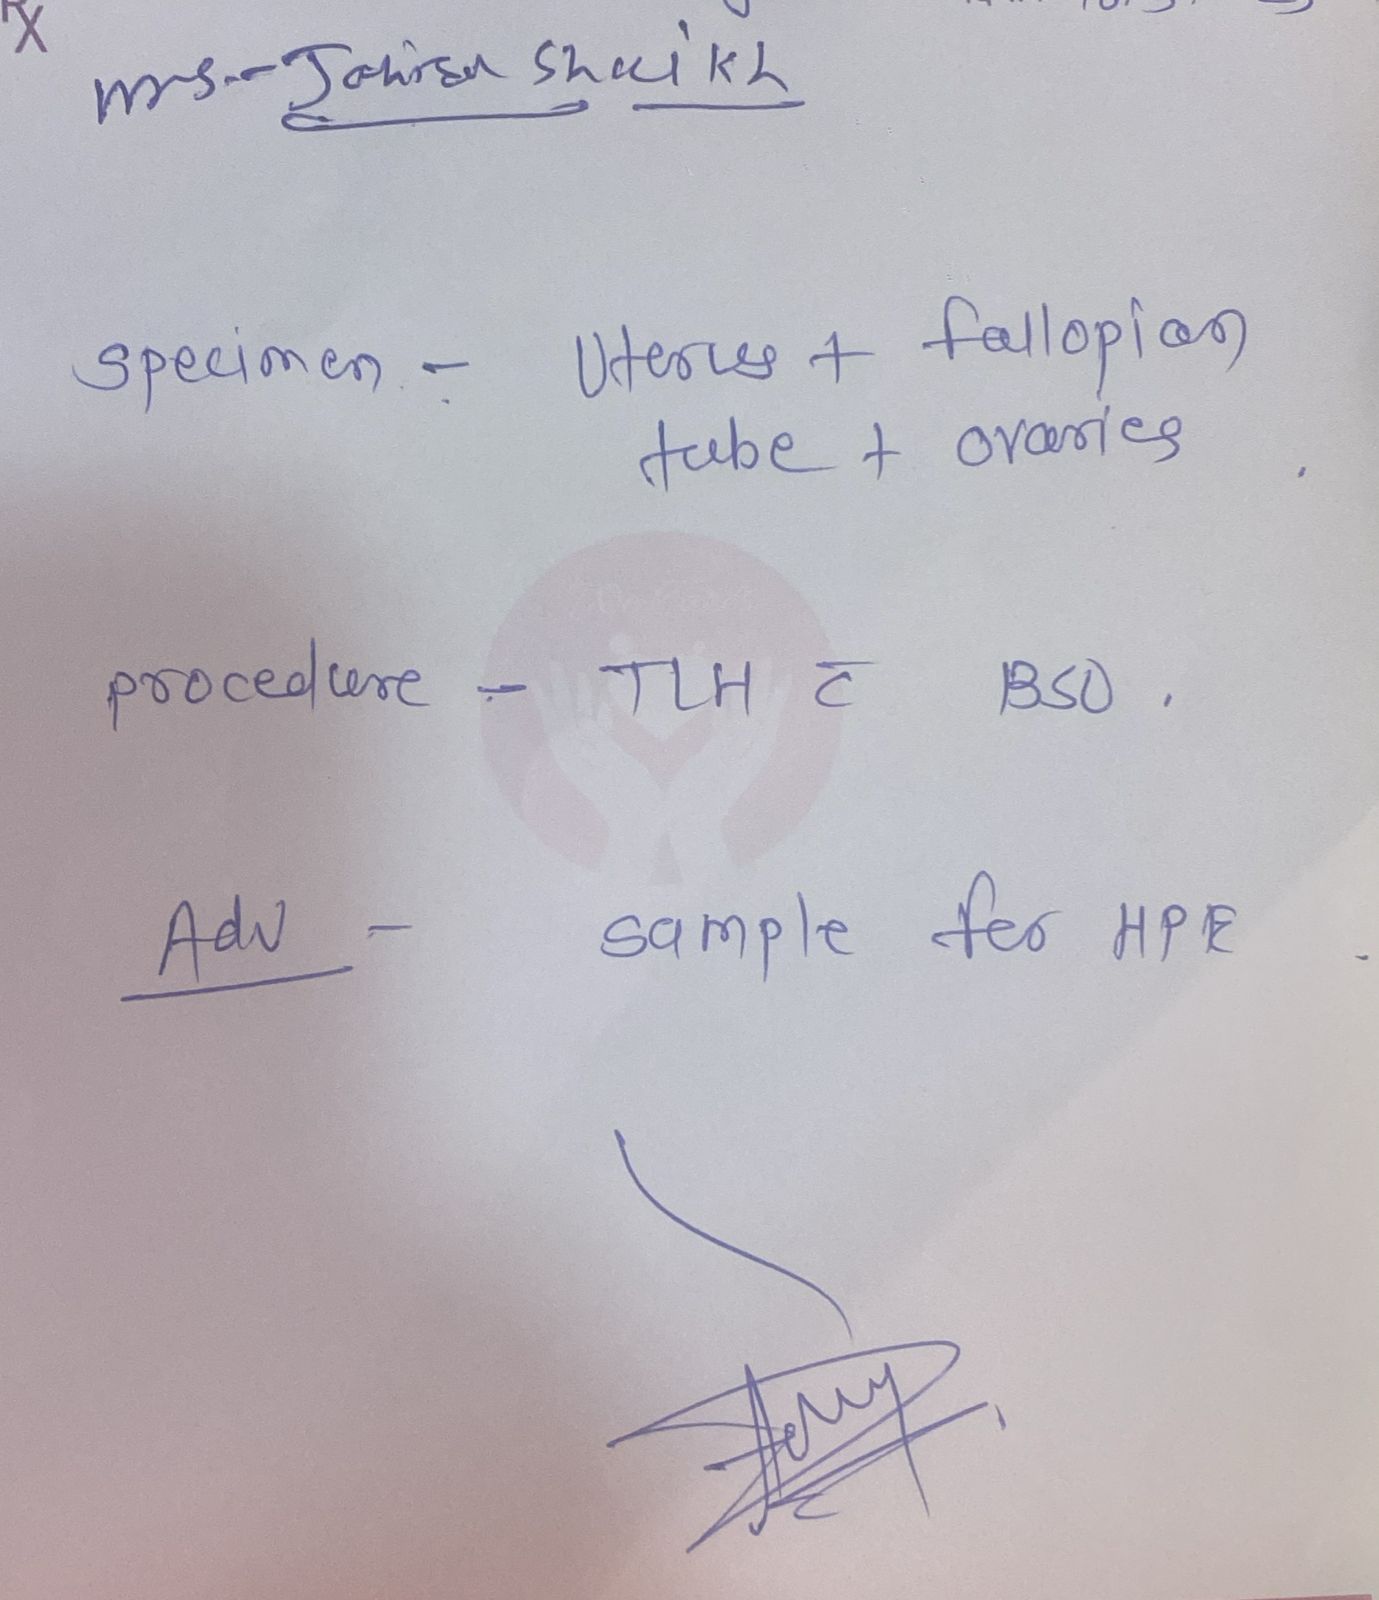 Rx
Mrs.- Shaikh
specimen - Uterus + fallopian
tube + ovaries
procedure - TLH c̅ BSO.
Adv - sample for HPE